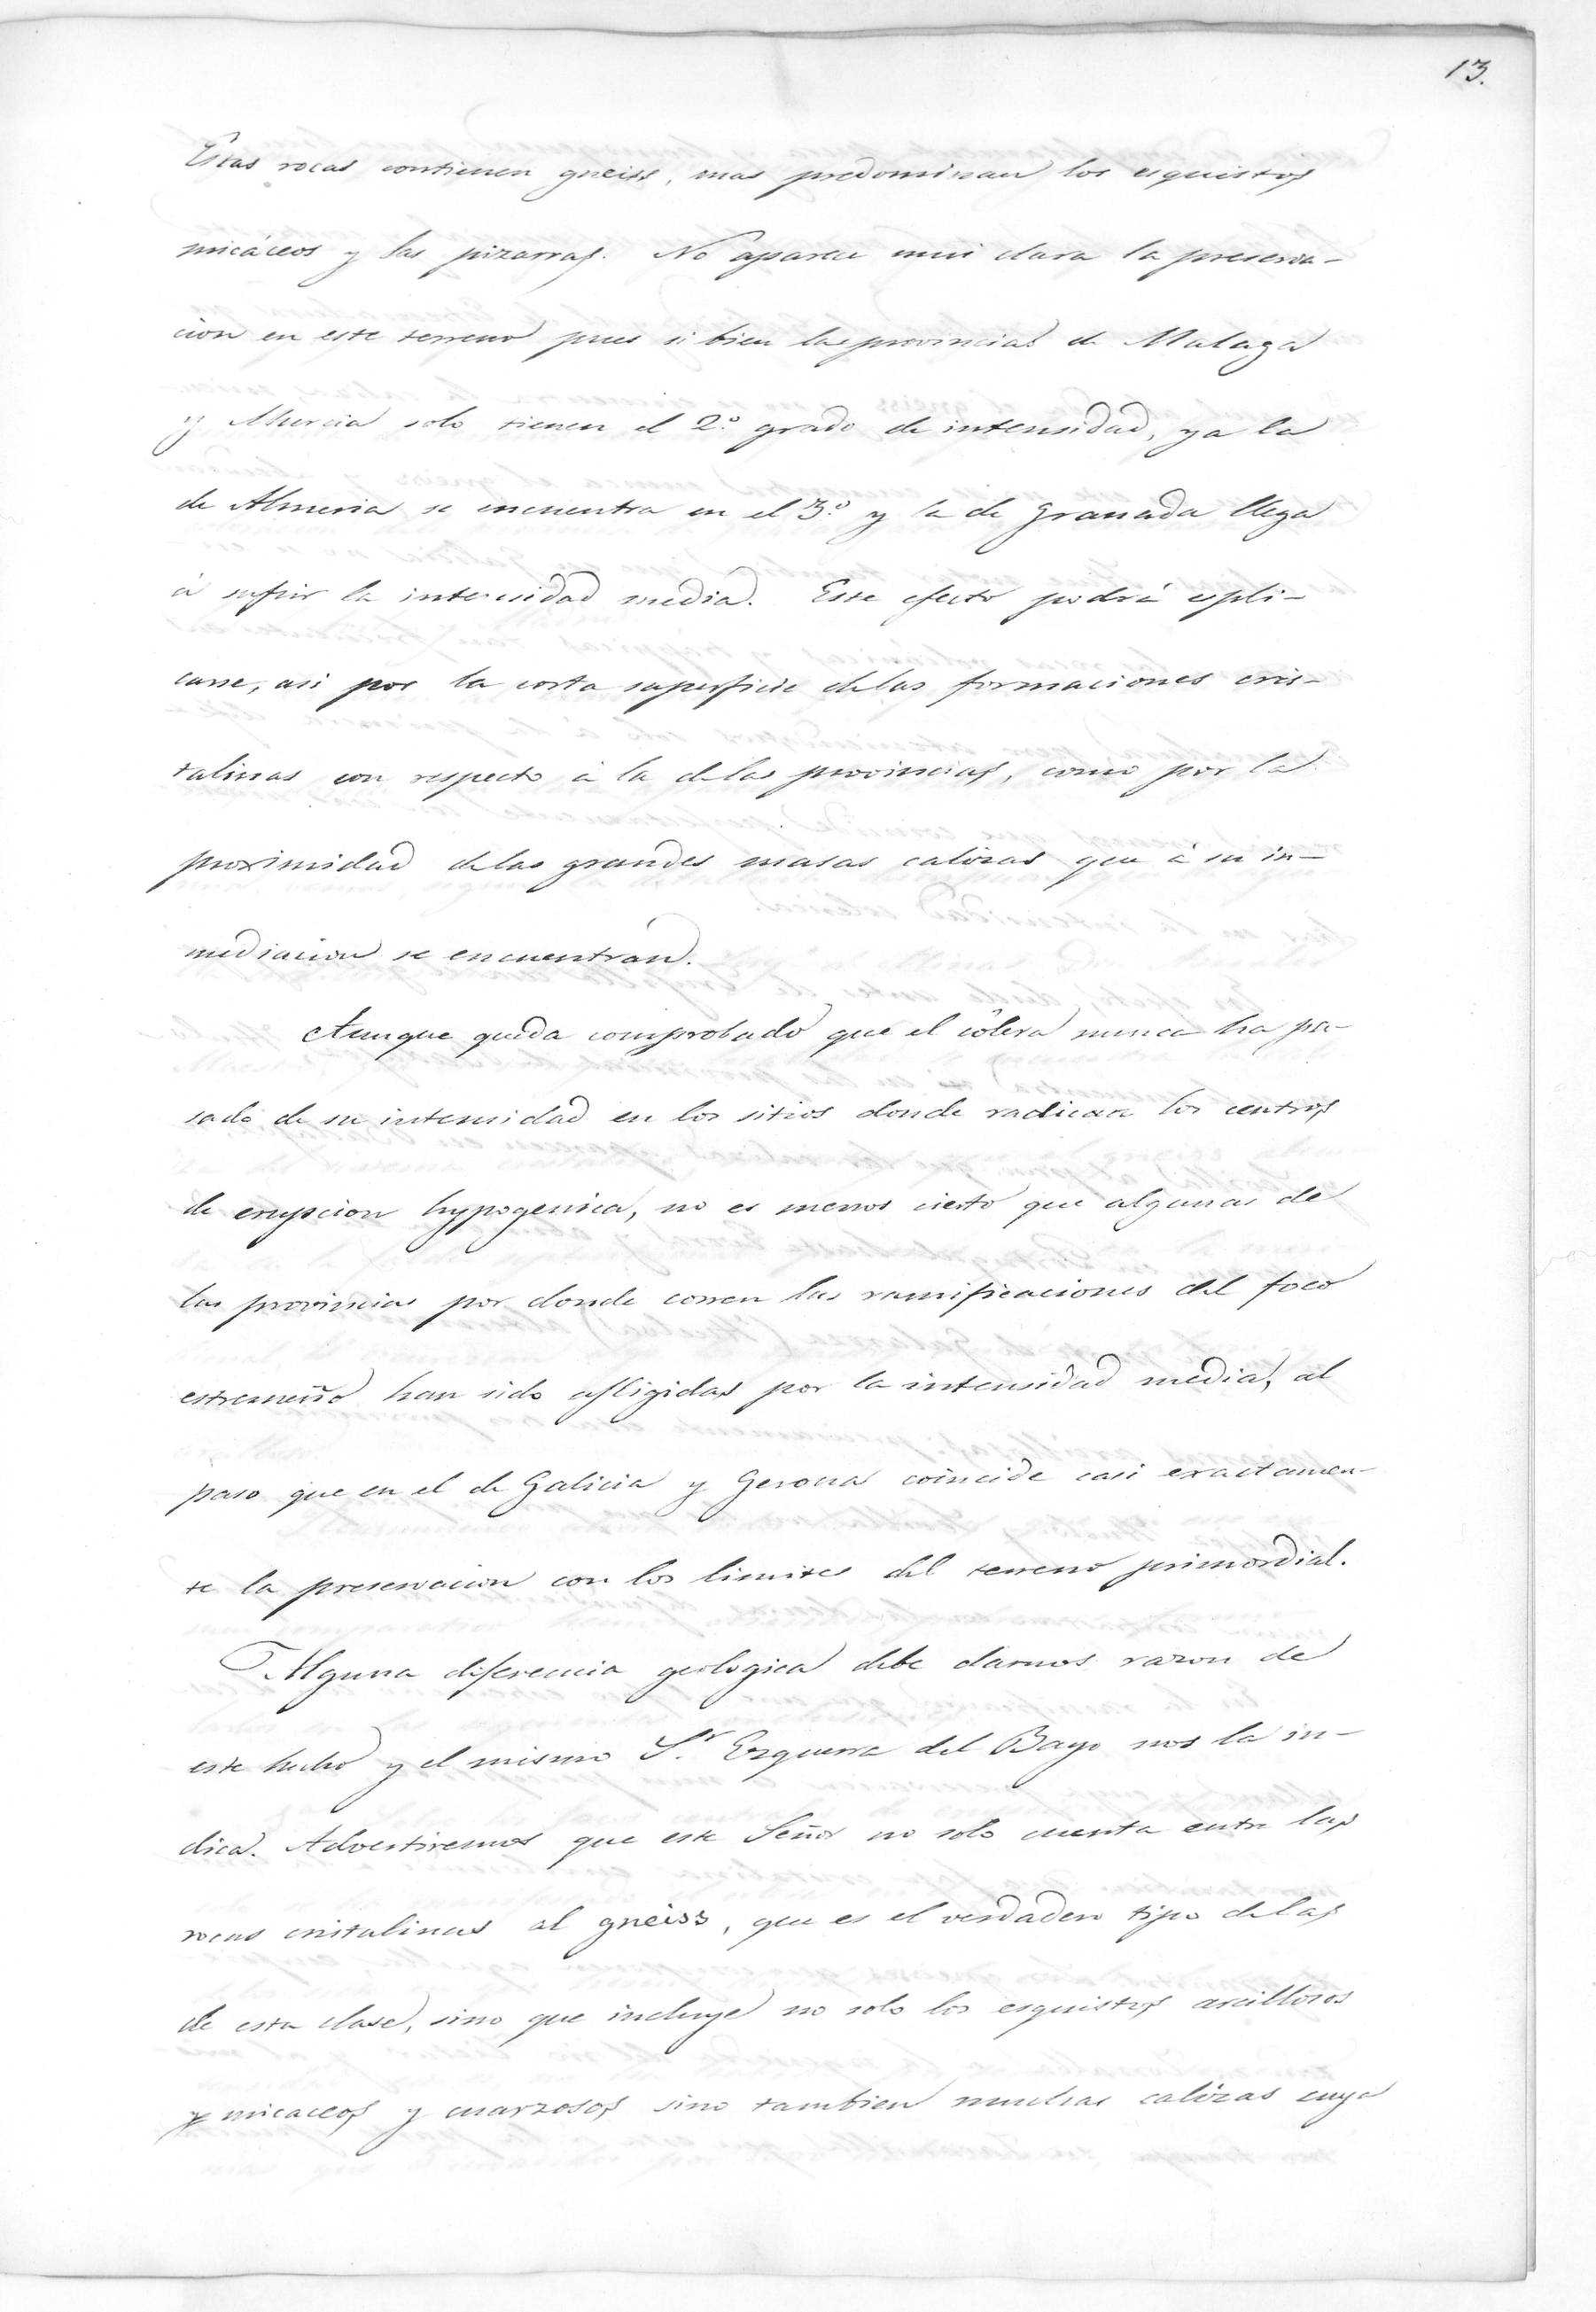 13.
Estas rocas contienen gneiss, mas predominan los esquistos
micáceos y las pizarras. No aparece mui clara la preserva-
cion en este terreno pues si bien las provincias de Malaga
y Murcia solo tienen el 2.º grado de intensidad, ya la
de Almeria se encuentra en el 3.º y la de Granada llega
á sufrir la intensidad media. Este efecto podrá espli-
carse, asi por la corta superficie delas formaciones cris-
talinas con respecto á la delas provincias, como por la
proximidad delas grandes masas calizas que á su in-
mediacion se encuentran.
Aunque queda comprobado que el cólera nunca ha pa-
sado de su intensidad en los sitios donde radican los centros
de erupcion hypogenica, no es menos cierto que algunas de
las provincias por donde corren las ramificaciones del foco
estremeño han sido afligidas por la intensidad media, al
paso que en el de Galicia y Gerona coincide casi exactamen-
te la preservacion con los limites del terreno primordial.
Alguna diferencia geologica debe darnos razon de
este hecho y el mismo S.r Ezquerra del Bayo nos la in-
dica. Advertiremos que este Señor no solo cuenta entre las
rocas cristalinas al gneiss, que es el verdadero tipo delas
de esta clase, sino que incluye no solo los esquistos arcillosos
y micaceos y cuarzosos sino tambien muchas calizas cuya